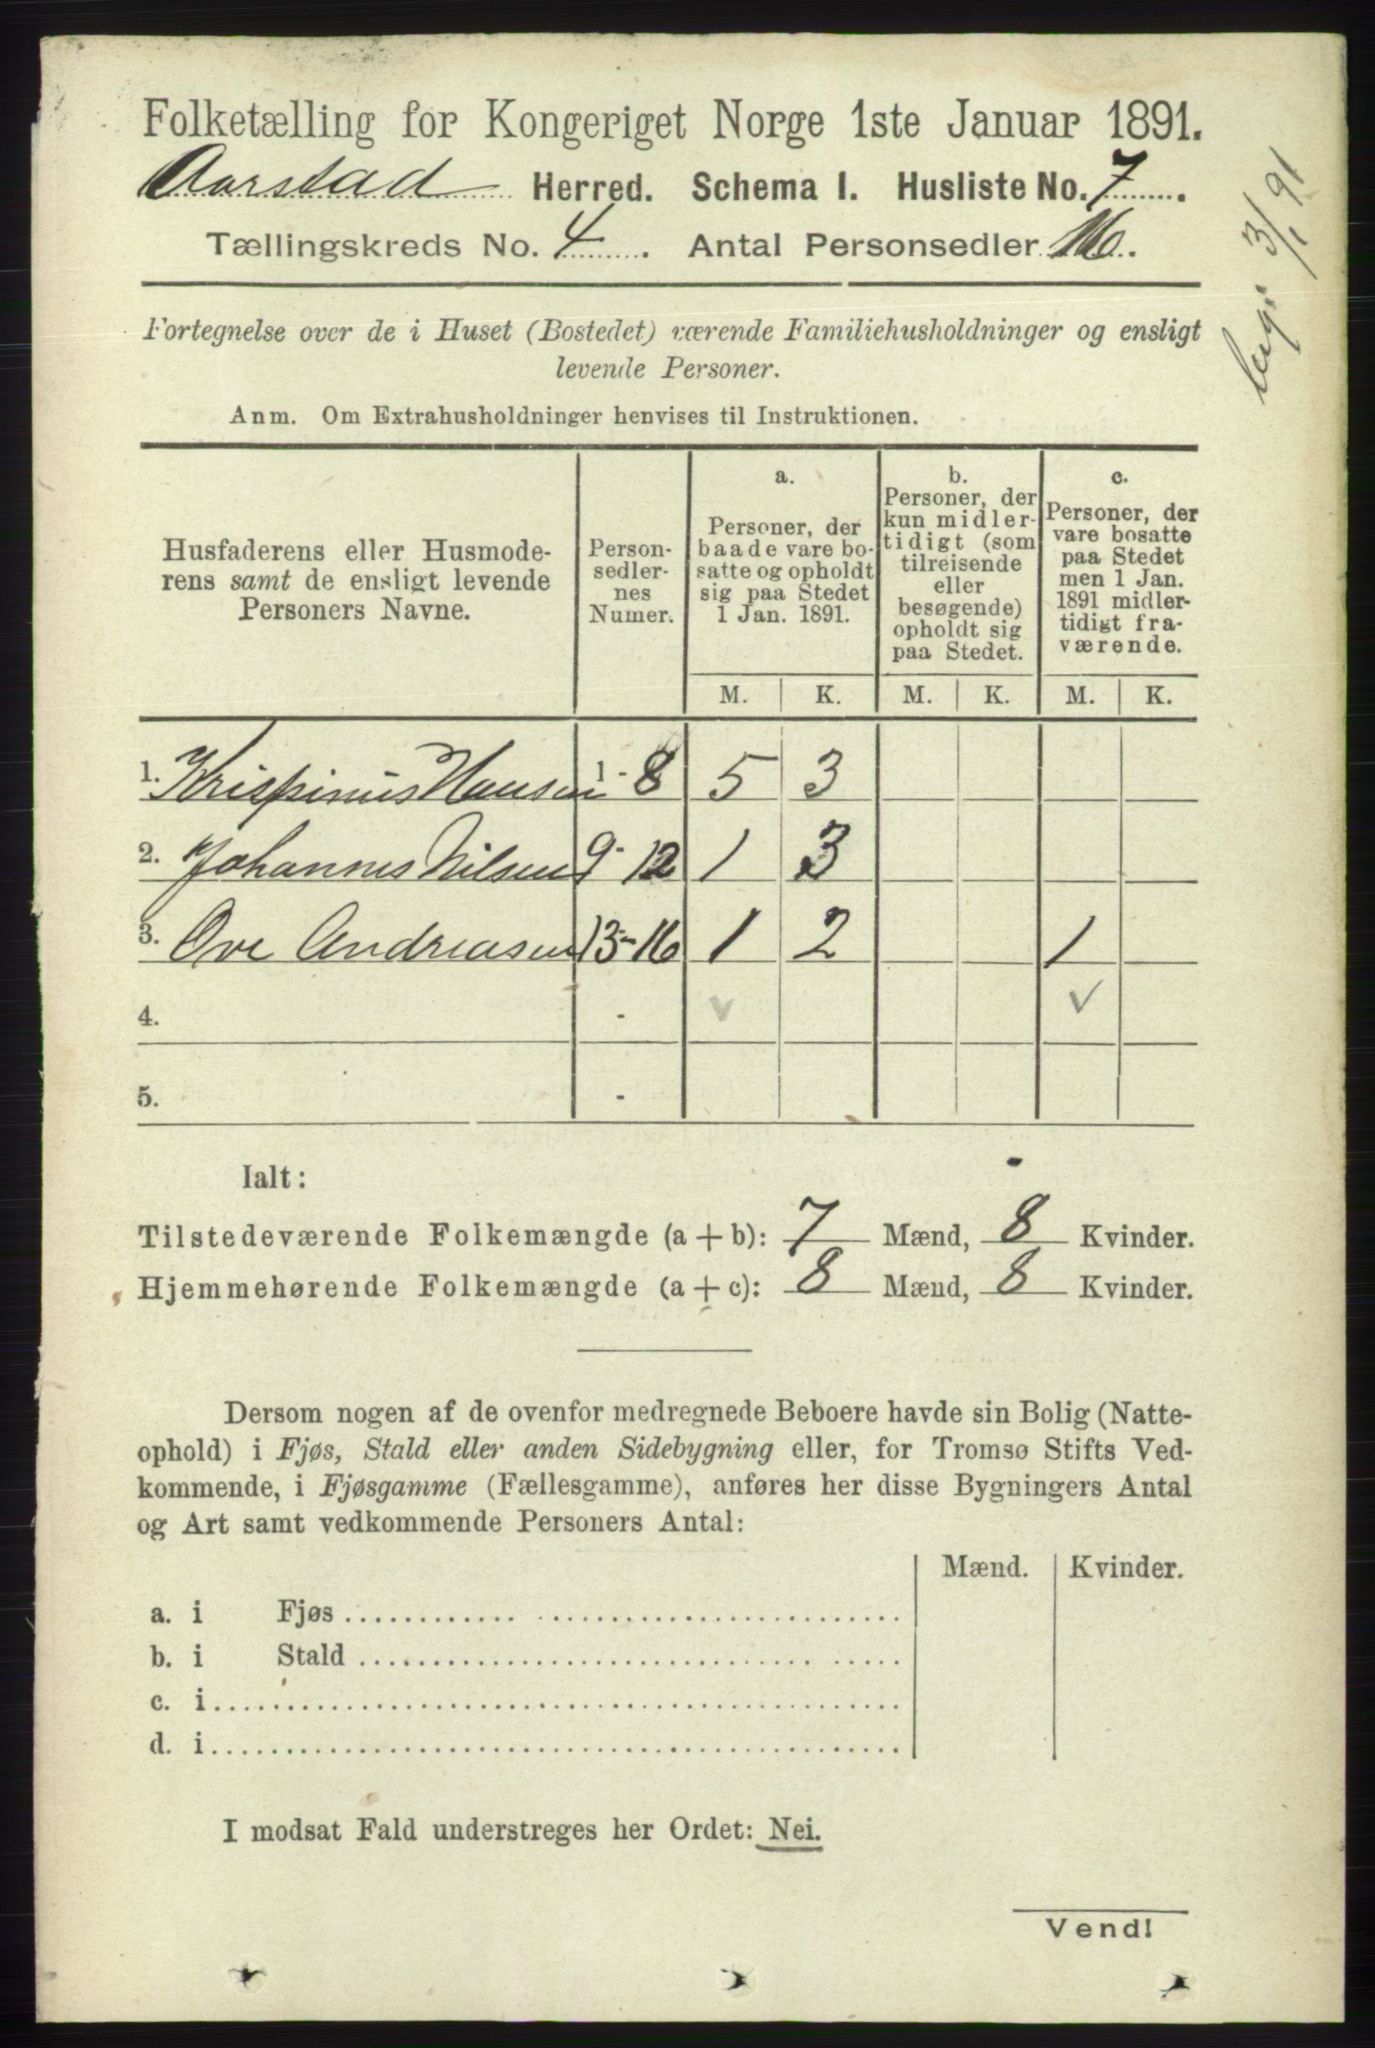 Folketælling for Kongeriget Norge 1ste Januar 1891.
Aarstad Herred. Schema I. Husliste No. 7.
Tællingskreds No. 4. Antal Personsedler 16.
3/1 91
Fortegnelse over de i Huset (Bostedet) værende Familiehusholdninger og ensligt
levende Personer.
Anm. Om Extrahusholdninger henvises til Instruktionen.
Husfaderens eller Husmode-
rens samt de ensligt levende
Personers Navne.
Person-
sedler-
nes
Numer.
a.
Personer, der
baade vare bo-
satte og opholdt
sig paa Stedet
1 Jan. 1891.
b.
Personer, der
kun midler-
tidigt (som
tilreisende
eller
besøgende)
opholdt sig
paa Stedet.
c.
Personer, der
vare bosatte
paa Stedet
men 1 Jan.
1891 midler-
tidigt fra-
værende.
M. K. M. K. M. K.
1. Krispinus Hansen 1 - 8 5 3
2. Johannes Nilsen 9 - 12 1 3
3. Ove Andreasen 13 - 16 1 2 1
4. - ✓ ✓
5. -
Ialt:
Tilstedeværende Folkemængde (a + b): 7 Mænd, 8 Kvinder.
Hjemmehørende Folkemængde (a + c): 8 Mænd, 8 Kvinder.
Dersom nogen af de ovenfor medregnede Beboere havde sin Bolig (Natte-
ophold) i Fjøs, Stald eller anden Sidebygning eller, for Tromsø Stifts Ved-
kommende, i Fjøsgamme (Fællesgamme), anføres her disse Bygningers Antal
og Art samt vedkommende Personers Antal:
Mænd. Kvinder.
a. i Fjøs
b. i Stald
c. i
d. i
I modsat Fald understreges her Ordet: Nei.
Vend!